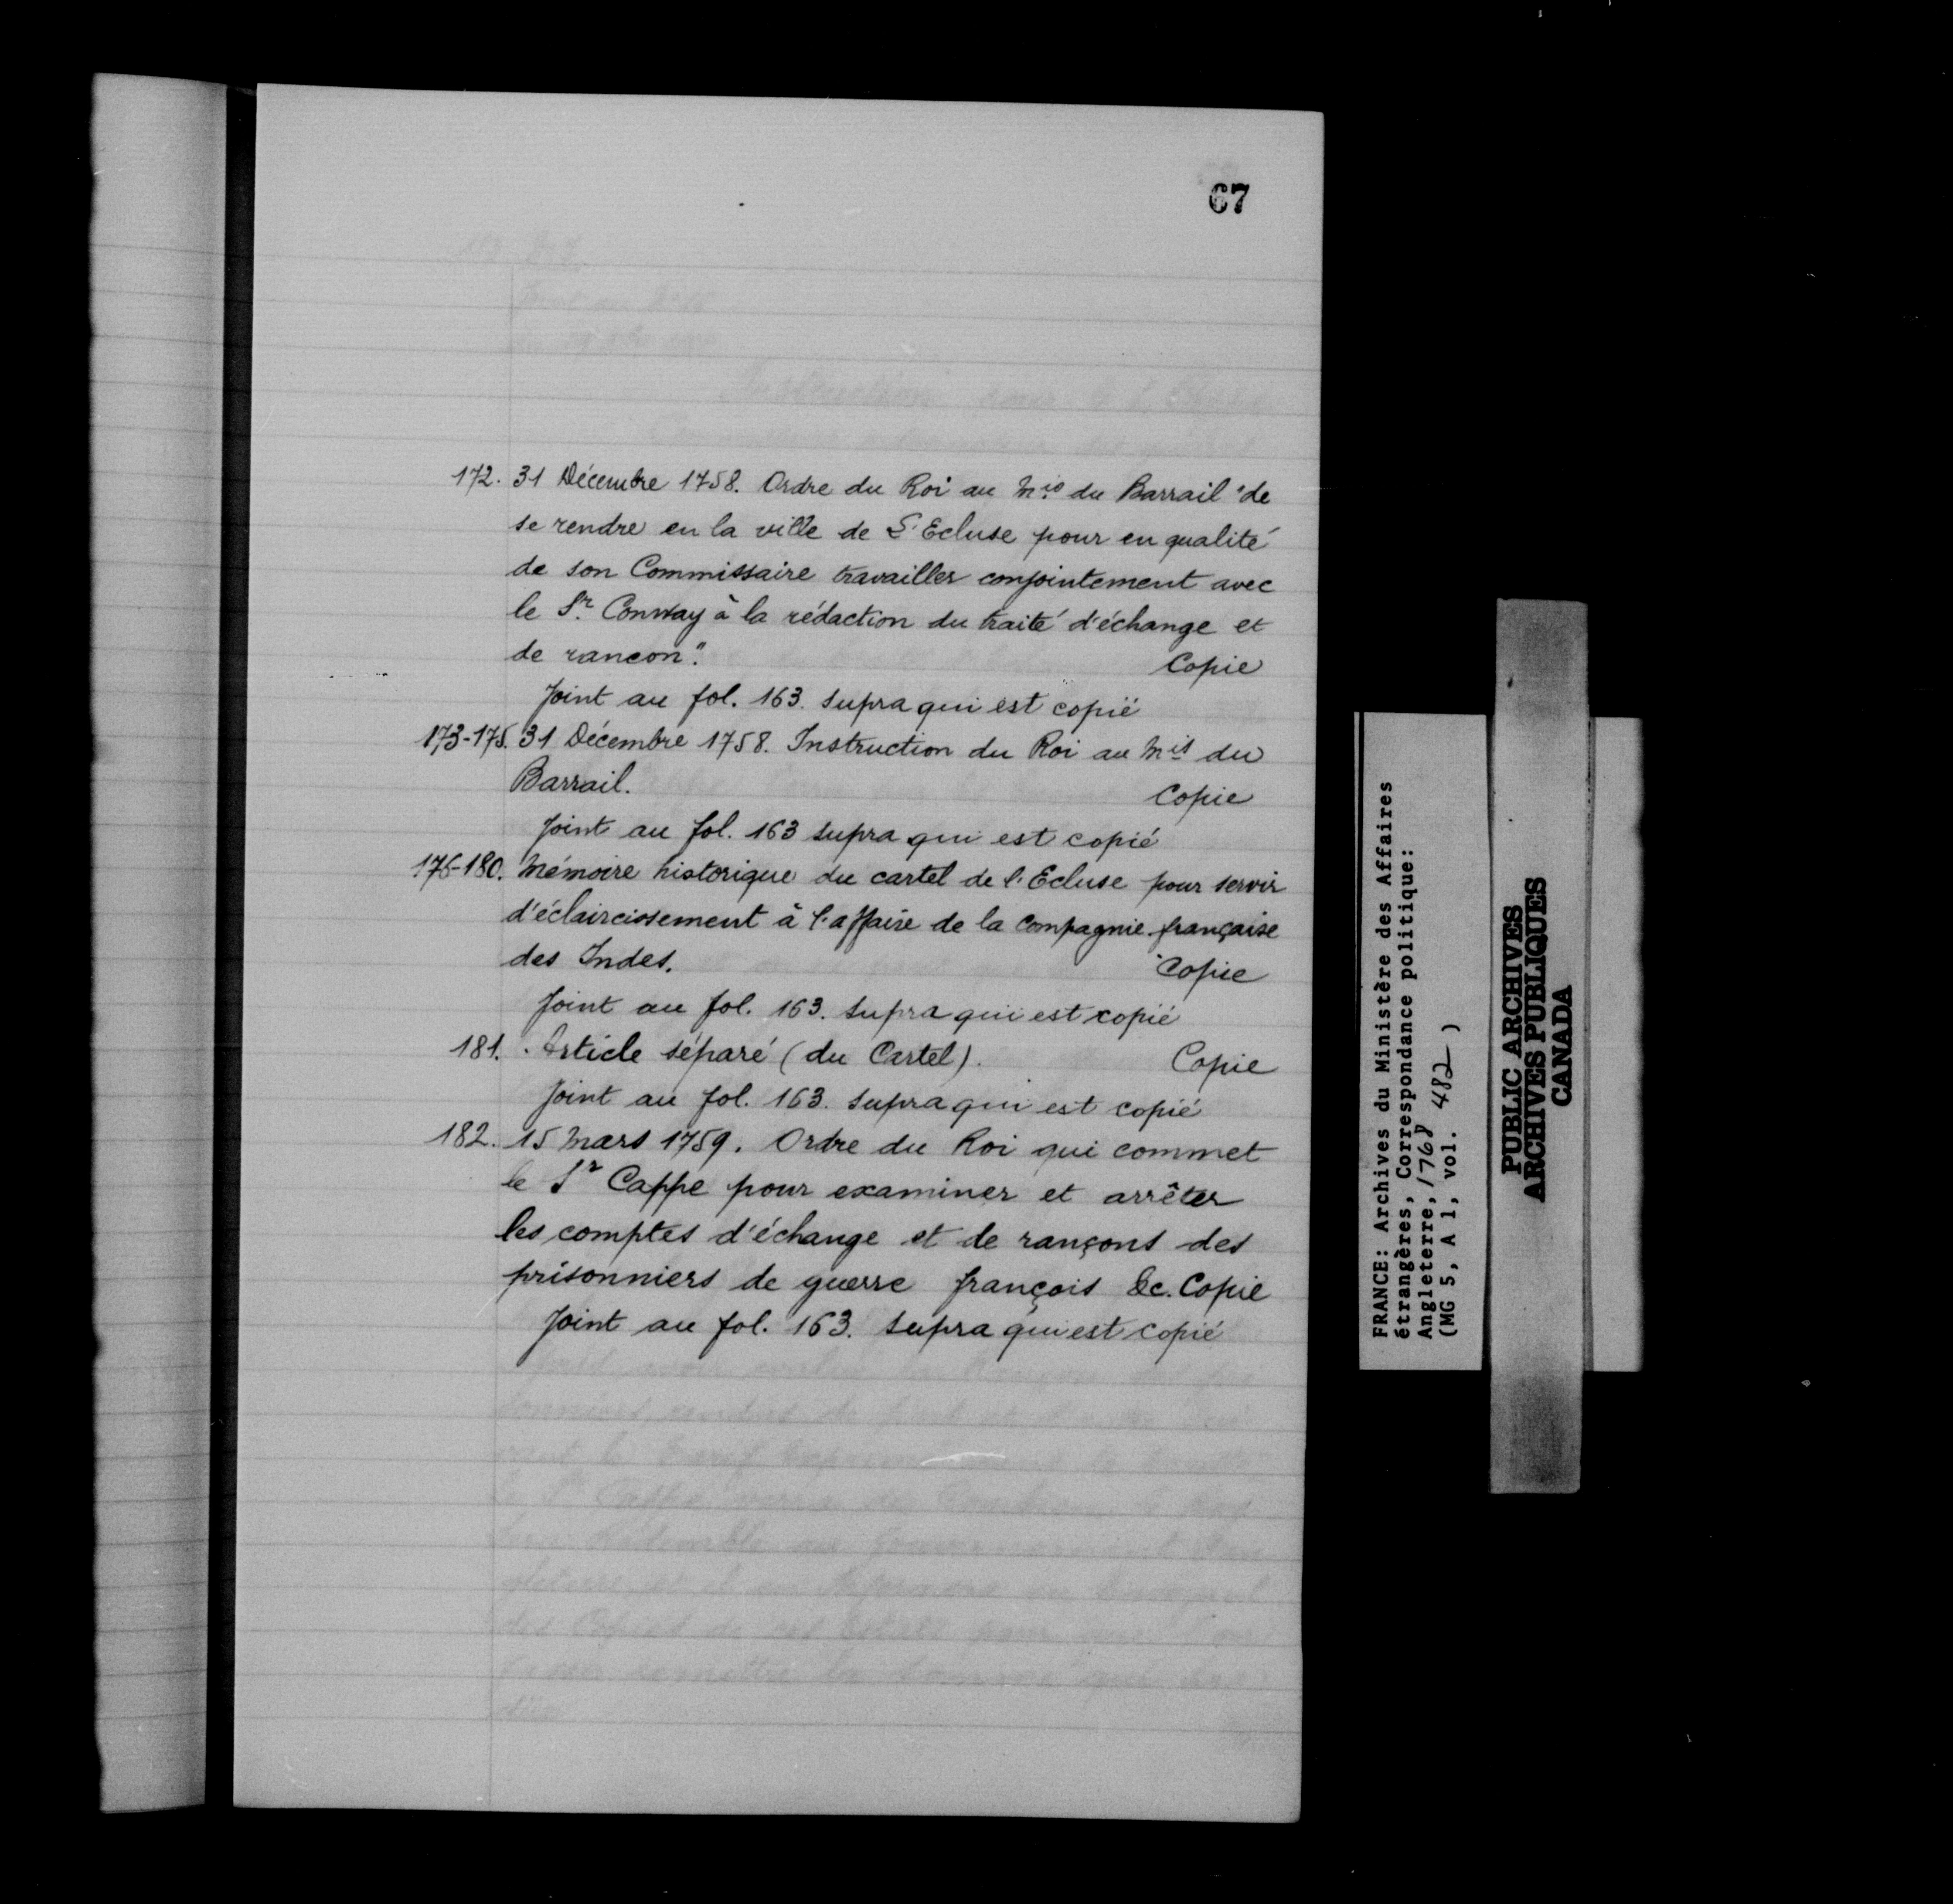 67
172. 31 Décembre 1758. Ordre du Roi au Mis du Barrail "de
se rendre en la ville de L'Ecluse pour en qualité
de son Commissaire travailler conjointement avec
le Sr. Conway à la rédaction du traité d'échange et
de rancon".
Copie
Joint au fol. 163. supra qui est copié
173-175. 31 Décembre 1758. Instruction du Roi au Mis du
Barrail.
Copie
Joint au fol. 163 supra qui est copié
176-180. Mémoire historique du cartel de l'Ecluse pour servir
d'éclaircissement à l'affaire de la Compagnie française
des Indes.
Copie
Joint au fol. 163. supra qui est copié
181. Article séparé (du Cartel).
Copie
Joint au fol. 163. supra qui est copié
182. 15 Mars 1759. Ordre du Roi qui commet
le Sr Cappe pour examiner et arrêter
les comptes d'échange et de rançons des
prisonniers de guerre françois &c. Copie
Joint au fol. 163. supra qui est copié
FRANCE: Archives du Ministère des Affaires
étrangères, Correspondance politique:
Angleterre, 1768
(MG 5, A 1, vol. 482)
PUBLIC ARCHIVES
ARCHIVES PUBLIQUES
CANADA